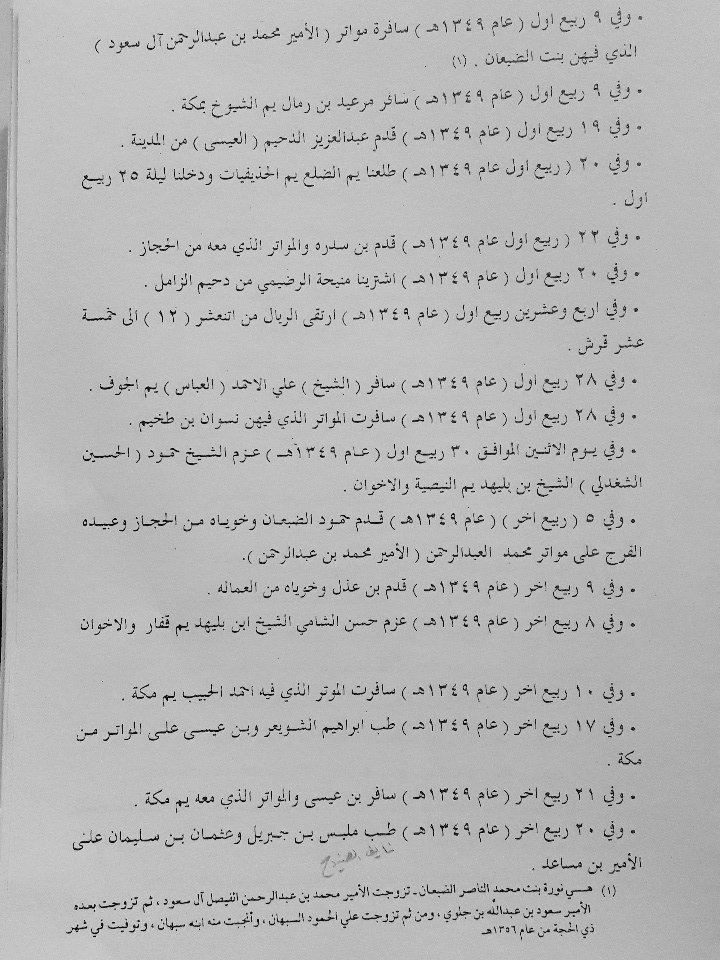 • وفي ٩ ربيع اول ( عام ١٣٤٩هـ ) سافرة مواتر ( الأمير محمد بن عبدالرحمن آل سعود )
الذي فيهن بنت الضبعان . (١)
• وفي ٩ ربيع اول ( عام ١٣٤٩هـ ) سافر مرعيد بن رمال يم الشيوخ بمكة .
• وفي ١٩ ربيع اول ( عام ١٣٤٩هـ ) قدم عبدالعزيز الدحيم ( العيسى ) من المدينة .
• وفي ٢٠ ( ربيع اول عام ١٣٤٩هـ ) طلعنا يم الضلع يم الحذيفيات ودخلنا ليلة ٢٥ ربيع
اول .
• وفي ٢٢ ( ربيع اول عام ١٣٤٩هـ ) قدم بن سدره والمواتر الذي معه من الحجاز .
• وفي ٢٠ ربيع اول ( عام ١٣٤٩هـ ) اشترينا منيحة الرضيمي من دحيم الزامل .
• وفي اربع وعشرين ربيع اول ( عام ١٣٤٩هـ ) ارتقى الريال من اتنعشر ( ١٢ ) الى خمسة
عشر قرش .
• وفي ٢٨ ربيع اول ( عام ١٣٤٩هـ ) سافر ( الشيخ ) علي الاحمد ( العباس ) يم الجوف .
• وفي ٢٨ ربيع اول ( عام ١٣٤٩هـ ) سافرت المواتر الذي فيهن نسوان بن طخيم .
• وفي يوم الاثنين الموافق ٣٠ ربيع اول ( عام ١٣٤٩هـ ) عزم الشيخ حمود ( الحسين
الشغدلي ) الشيخ بن بليهد يم النيصية والاخوان .
• وفي ٥ ( ربيع اخر ) ( عام ١٣٤٩هـ ) قدم حمود الضبعان وخوياه من الحجاز وعبيده
الفرج على مواتر محمد العبدالرحمن ( الأمير محمد بن عبدالرحمن ).
• وفي ٩ ربيع اخر ( عام ١٣٤٩هـ ) قدم بن عذل وخوياه من العماله .
• وفي ٨ ربيع اخر ( عام ١٣٤٩هـ ) عزم حسن الشامي الشيخ ابن بليهد يم قفار والاخوان
• وفي ١٠ ربيع اخر ( عام ١٣٤٩هـ ) سافرت الموتر الذي فيه احمد الحبيب يم مكة .
• وفي ١٧ ربيع اخر ( عام ١٣٤٩هـ ) طب ابراهيم الشويعر وبن عيسى على المواتر من
مكة .
• وفي ٢١ ربيع اخر ( عام ١٣٤٩هـ ) سافر بن عيسى والمواتر الذي معه يم مكة .
• وفي ٢٠ ربيع اخر ( عام ١٣٤٩هـ ) طب ملبس بن جبريل وعثمان بن سليمان على
الأمير بن مساعد .
(١) هـي نورة بنت محمد الناصر الضبعان ـ تزوجت الأمير محمد بن عبدالرحمن الفيصل آل سعود ، ثم تزوجت بعده
الأمير سعود بن عبدالله بن جلوي ، ومن ثم تزوجت علي الحمود السبهان ، وأنجبت منه ابنه سبهان ، وتوفيت في شهر
ذي الحجة من عام ١٣٥٦هـ